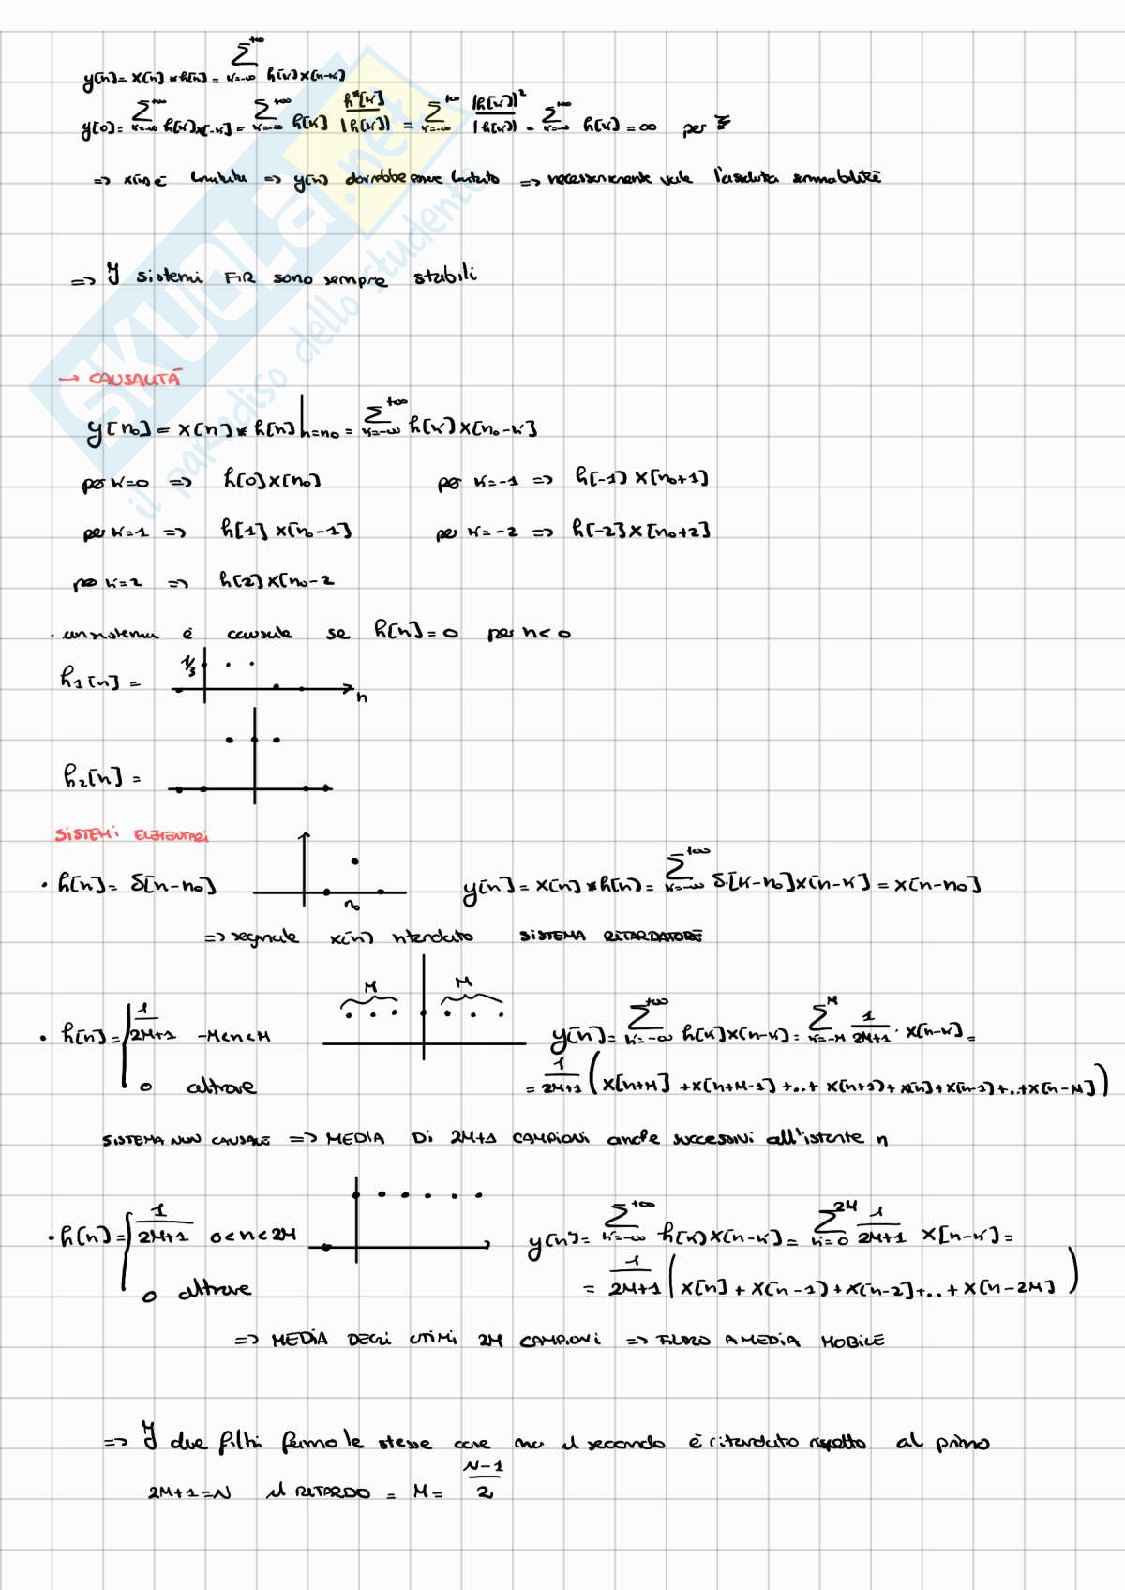 y[n] = x[n] * h[n] = Σ_{k=-∞}^{+∞} h[k] x[n-k]
y[0] = Σ_{k=-∞}^{+∞} h[k] x[-k] = Σ_{k=-∞}^{+∞} h[k] h*[k] / |h[k]| = Σ_{k=-∞}^{+∞} |h[k]|² / |h[k]| = Σ_{k=-∞}^{+∞} h[k] = ∞ per
=> x[n] è limitata => y[n] dovrebbe essere limitato => necessariamente vale l'assoluta sommabilità
=> I sistemi FIR sono sempre stabili
→ CAUSALITÀ
y[n₀] = x[n] * h[n] |_{n=n₀} = Σ_{k=-∞}^{+∞} h[k] x[n₀-k]
per k=0 => h[0] x[n₀] per k=-1 => h[-1] x[n₀+1]
per k=1 => h[1] x[n₀-1] per k=-2 => h[-2] x[n₀+2]
per k=2 => h[2] x[n₀-2
· un sistema è causale se h[n] = 0 per n < 0
h₁[n] = 1/3 n
h₂[n] =
SISTEMI ELEMENTARI
• h[n] = δ[n-n₀] n₀ y[n] = x[n] * h[n] = Σ_{k=-∞}^{+∞} δ[k-n₀] x[n-k] = x[n-n₀]
=> segnale x[n] ritardato SISTEMA RITARDATORE
M M
• h[n] = 1/(2M+1) -M<n<M y[n] = Σ_{k=-∞}^{+∞} h[k] x[n-k] = Σ_{k=-M}^{M} 1/(2M+1) · x[n-k] =
0 altrove = 1/(2M+1) ( x[n+M] + x[n+M-1] +..+ x[n+1] + x[n] + x[n-1] +..+ x[n-M] )
SISTEMA NON CAUSALE => MEDIA DI 2M+1 CAMPIONI anche successivi all'istante n
• h[n] = 1/(2M+1) 0<n<2M y[n] = Σ_{k=-∞}^{+∞} h[k] x[n-k] = Σ_{k=0}^{2M} 1/(2M+1) x[n-k] =
0 altrove = 1/(2M+1) ( x[n] + x[n-1] + x[n-2] +..+ x[n-2M] )
=> MEDIA DEGLI ULTIMI 2M CAMPIONI => FILTRO A MEDIA MOBILE
=> I due filtri fanno le stesse cose ma il secondo è ritardato rispetto al primo
2M+1=N il RITARDO = M = (N-1)/2
SKUOLA.net
il paradiso dello studente